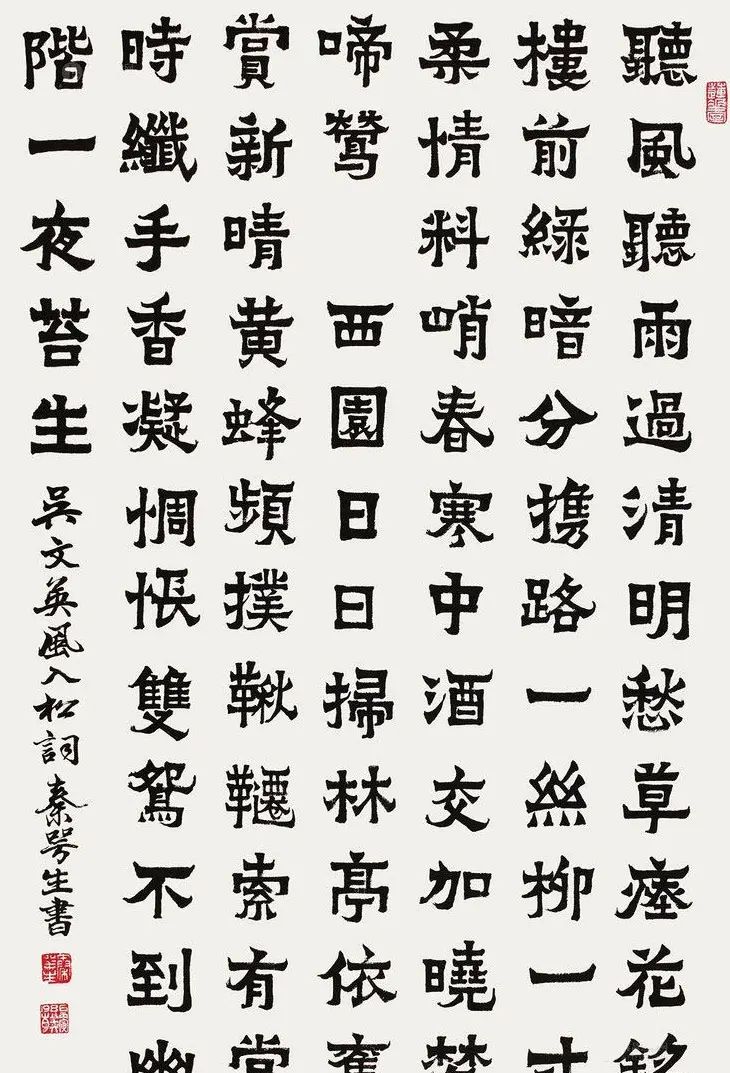 聽風聽雨過清明愁草瘞花銘
樓前綠暗分携路一絲柳一寸
柔情料哨春寒中酒交加曉夢
啼鶯 西園日日掃林亭依舊
賞新晴黄蜂頻撲鞦韆索有當
時纖手香凝惆悵雙鴛不到幽
階一夜苔生
吳文英風入松詞 秦咢生書